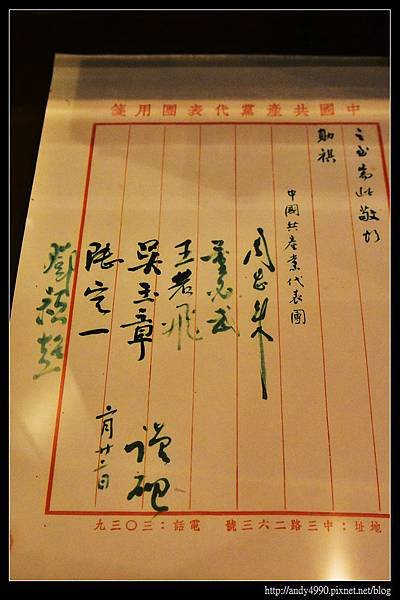 中國共產黨代表團用箋
之至耑此敬頌
勛祺
中國共產黨代表團
周恩來
董必武
王若飛
吳玉章
陸定一
鄧穎超
謹啟
月廿二日
地址:中三路二六三號 電話:三〇三九
http://andy4990.pixnet.net/blog